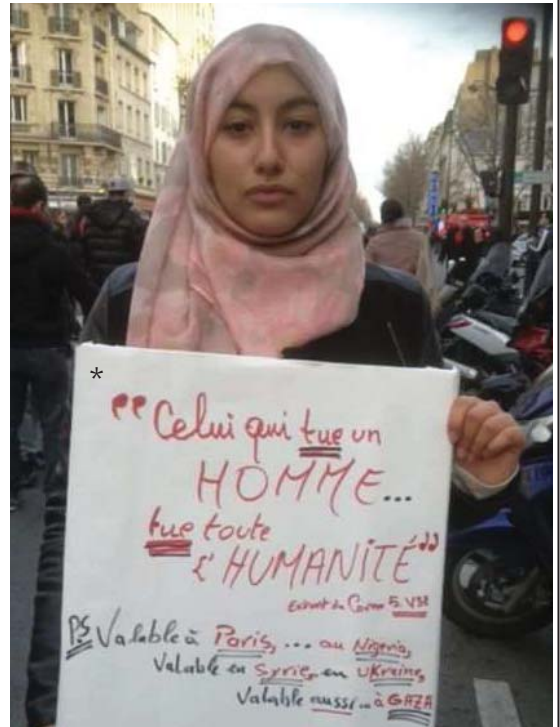 *
"Celui qui tue un
HOMME...
tue toute
l'HUMANITÉ"
Extrait du Coran 5. V32
PS Valable à Paris, ... au Nigeria,
Valable en Syrie, en UKraine,
Valable aussi... à GAZA